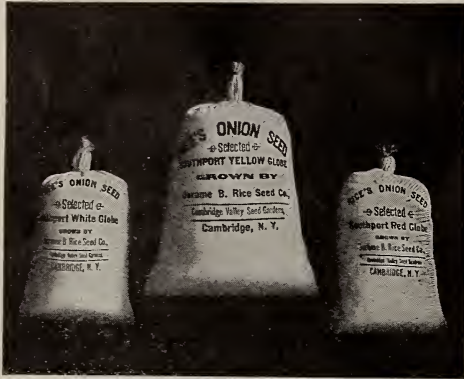 RICE'S ONION SEED
Selected
Southport White Globe
GROWN BY
Jerome B. Rice Seed Co.,
Cambridge Valley Seed Gardens,
CAMBRIDGE, N. Y.
RICE'S ONION SEED
Selected
SOUTHPORT YELLOW GLOBE
GROWN BY
Jerome B. Rice Seed Co.,
Cambridge Valley Seed Gardens,
Cambridge, N. Y.
RICE'S ONION SEED
Selected
Southport Red Globe
GROWN BY
Jerome B. Rice Seed Co.,
Cambridge Valley Seed Gardens,
CAMBRIDGE, N. Y.